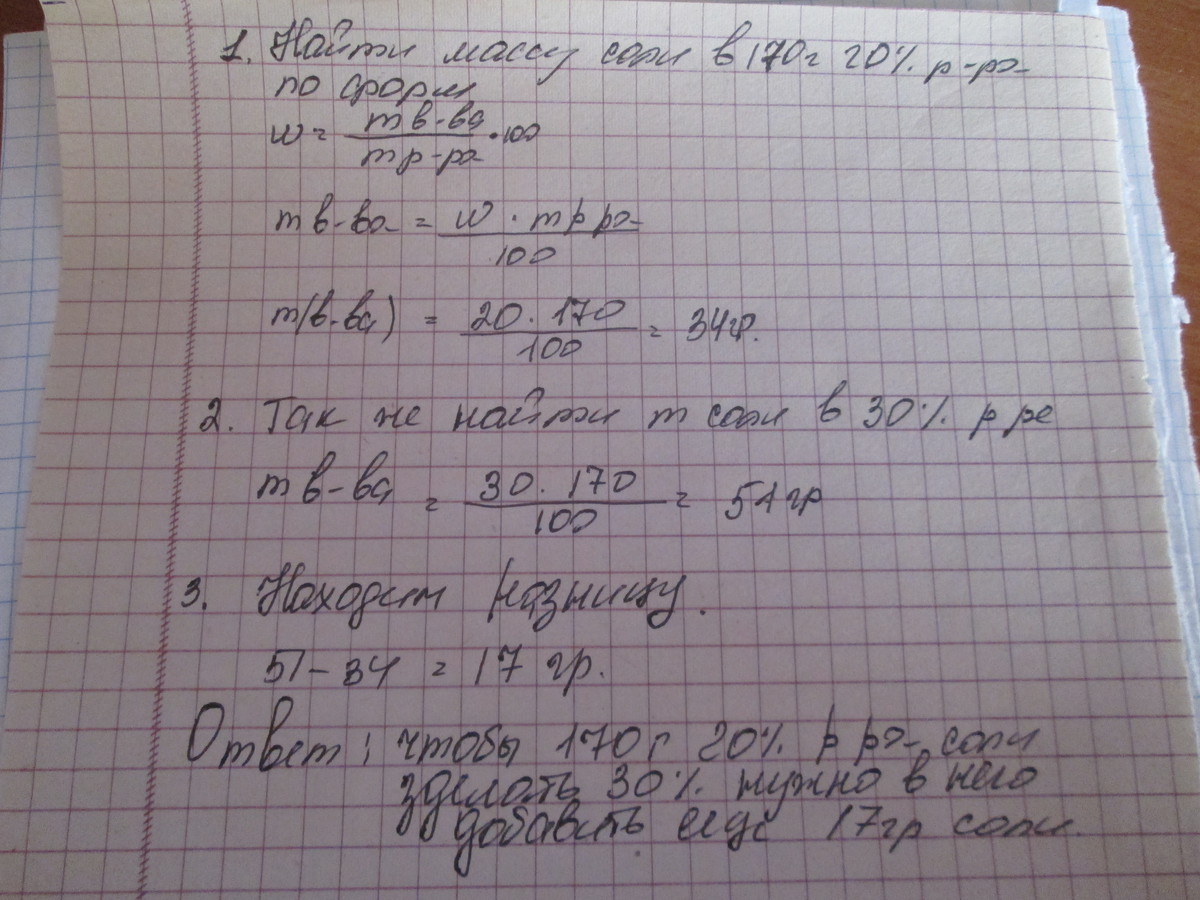 1. Найти массу соли в 170г 20% р-ра
по форм
w = m в-ва / m р-ра • 100
m в-ва = w · m р ра / 100
m(в-ва) = 20 · 170 / 100 = 34гр.
2. Так же найти m соли в 30% р ре
m в-ва = 30 · 170 / 100 = 51 гр
3. Находим разницу.
51 - 34 = 17 гр.
Ответ: чтобы 170г 20% р ра соли
зделать 30% нужно в него
добавить еще 17гр соли.